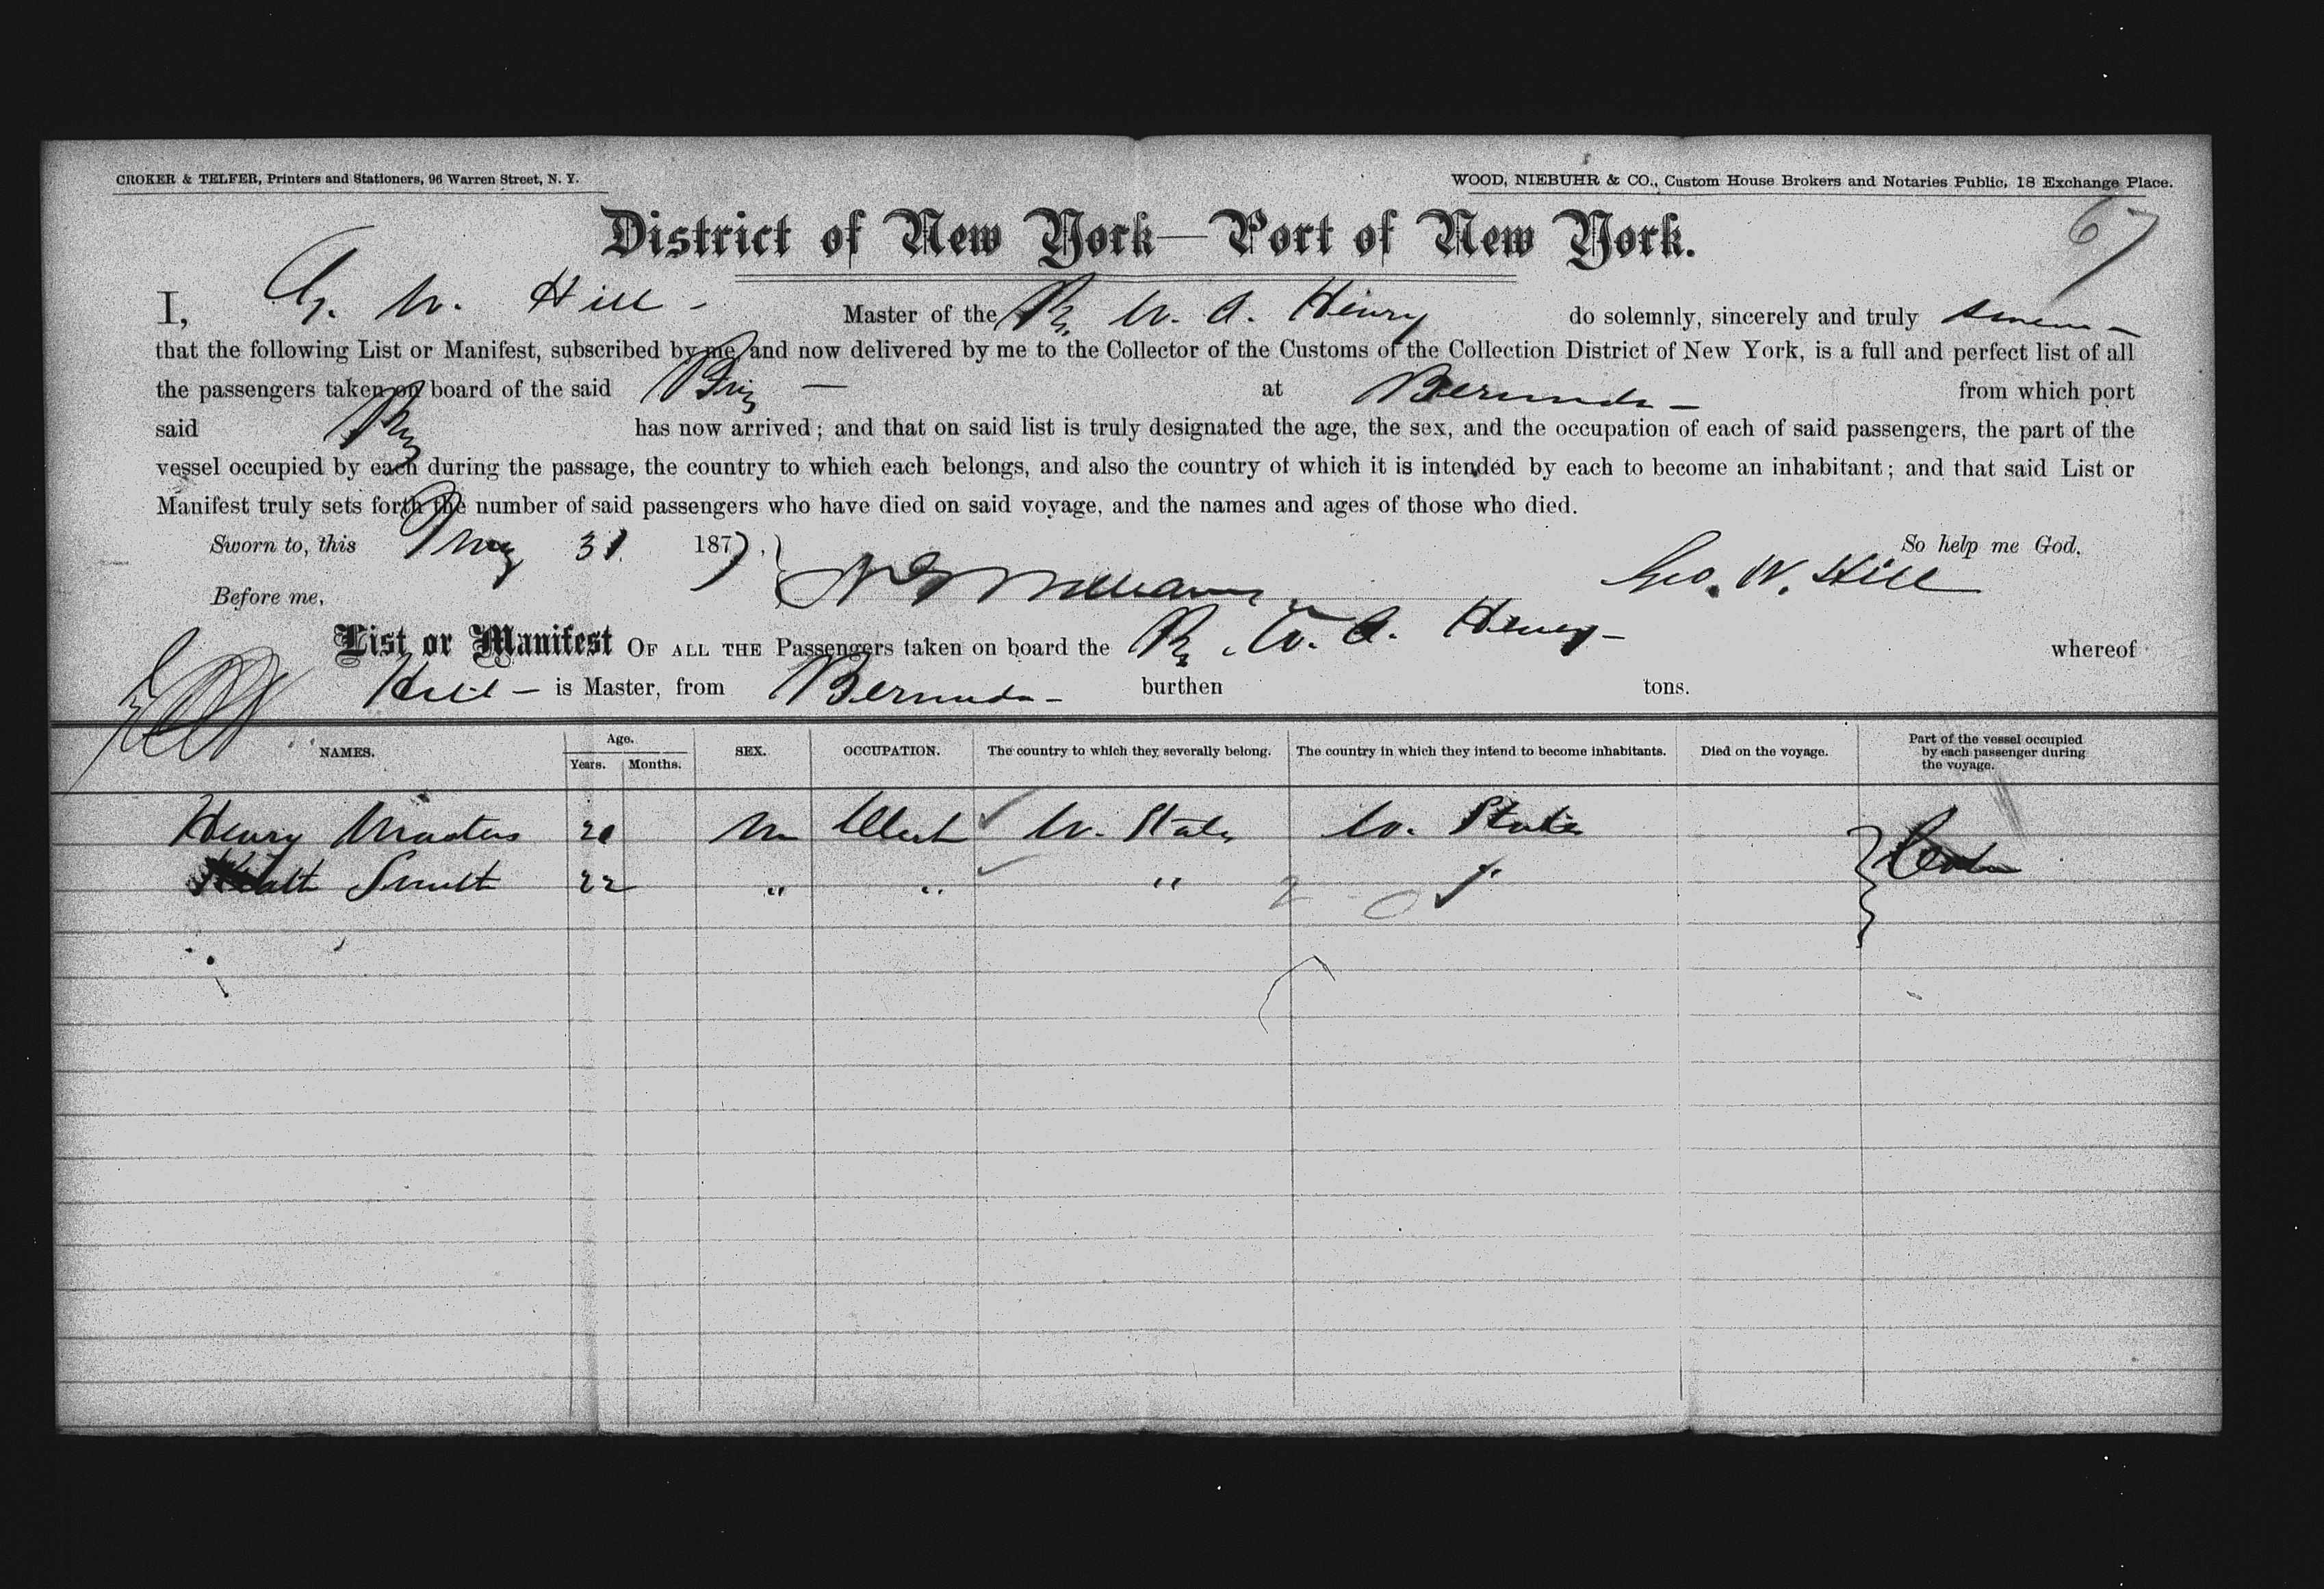 CROKER & TELFER, Printers and Stationers, 96 Warren Street, N. Y. WOOD, NIEBUHR & CO., Custom House Brokers and Notaries Public, 18 Exchange Place.
67
District of New York—Port of New York.
I, G. W. Hill - Master of the Br. W. A. Henry do solemnly, sincerely and truly swear -
that the following List or Manifest, subscribed by me, and now delivered by me to the Collector of the Customs of the Collection District of New York, is a full and perfect list of all
the passengers taken on board of the said Brig — at Bermuda - from which port
said Brig has now arrived; and that on said list is truly designated the age, the sex, and the occupation of each of said passengers, the part of the
vessel occupied by each during the passage, the country to which each belongs, and also the country of which it is intended by each to become an inhabitant; and that said List or
Manifest truly sets forth the number of said passengers who have died on said voyage, and the names and ages of those who died.
Sworn to, this May 31 1877, So help me God,
Before me, Williams Geo. W. Hill
List or Manifest OF ALL THE Passengers taken on board the Br. W. A. Henry - whereof
Hill - is Master, from Bermuda - burthen tons.
NAMES. Age. Years. Months. SEX. OCCUPATION. The country to which they severally belong. The country in which they intend to become inhabitants. Died on the voyage. Part of the vessel occupied by each passenger during the voyage.
Henry Masters 20 M Clerk U. States U. States
Smith 22 " " " "